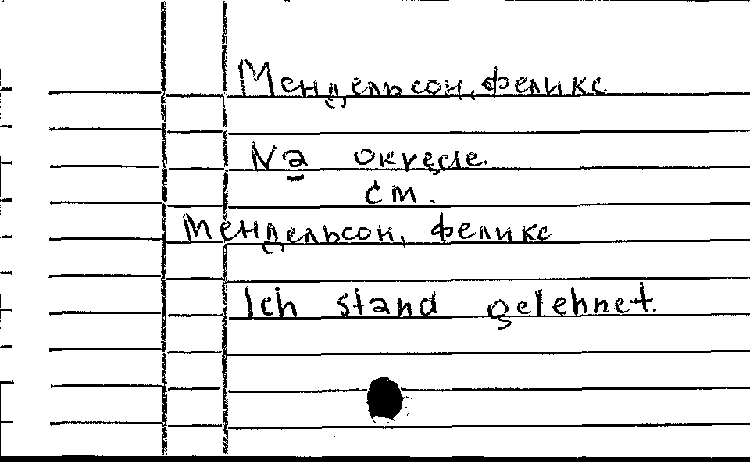 Мендельсон, феликс
Na okręcie.
см.
Мендельсон, феликс
Ich stand gelehnet.